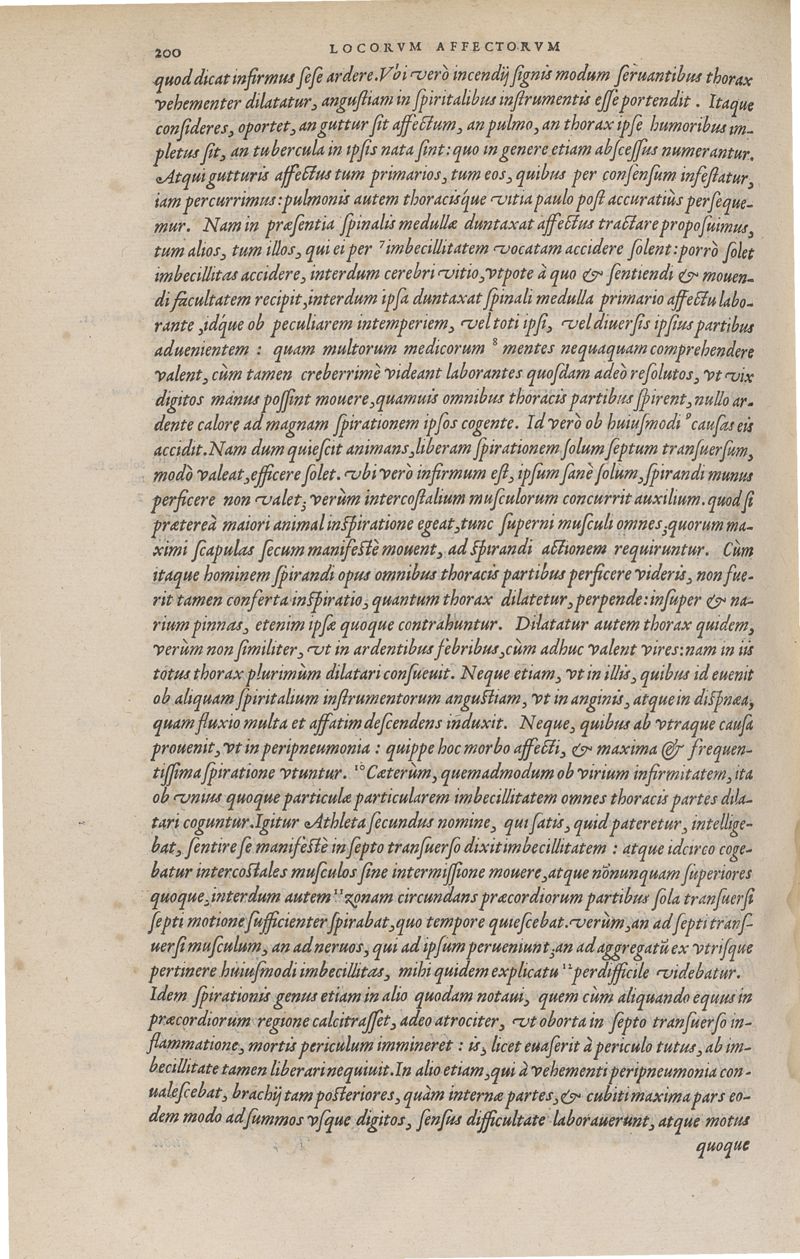 200 LOCORVM AFFECTORVM
quod dicat infirmus ſeſe ardere. Vbi verò incendij ſignis modum ſeruantibus thorax
vehementer dilatatur, anguſtiam in ſpiritalibus inſtrumentis eſſe portendit. Itaque
conſideres, oportet, an guttur ſit affectum, an pulmo, an thorax ipſe humoribus im-
pletus ſit, an tubercula in ipſis nata ſint: quo in genere etiam abſceſſus numerantur.
Atqui gutturis affectus tum primarios, tum eos, quibus per conſenſum infeſtatur,
iam percurrimus: pulmonis autem thoraciſq́ue vitia paulo poſt accuratiùs perſeque-
mur. Nam in præſentia ſpinalis medullæ duntaxat affectus tractare propoſuimus,
tum alios, tum illos, qui ei per ⁷imbecillitatem vocatam accidere ſolent: porrò ſolet
imbecillitas accidere, interdum cerebri vitio, vtpote à quo & ſentiendi & mouen-
di facultatem recipit, interdum ipſa duntaxat ſpinali medulla primario affectu labo-
rante, idq́ue ob peculiarem intemperiem, vel toti ipſi, vel diuerſis ipſius partibus
aduenientem : quam multorum medicorum ⁸ mentes nequaquam comprehendere
valent, cùm tamen creberrimè videant laborantes quoſdam adeò reſolutos, vt vix
digitos manus poſſint mouere, quamuis omnibus thoracis partibus ſpirent, nullo ar-
dente calore ad magnam ſpirationem ipſos cogente. Id verò ob huiuſmodi ⁹cauſas eis
accidit. Nam dum quieſcit animans, liberam ſpirationem ſolum ſeptum tranſuerſum,
modò valeat, efficere ſolet. vbi verò infirmum eſt, ipſum ſanè ſolùm, ſpirandi munus
perficere non valet; verùm intercoſtalium muſculorum concurrit auxilium. quod ſi
præterea maiori animal inſpiratione egeat, tunc ſuperni muſculi omnes, quorum ma-
ximi ſcapulas ſecum manifeſtè mouent, ad ſpirandi actionem requiruntur. Cùm
itaque hominem ſpirandi opus omnibus thoracis partibus perficere videris, non fue-
rit tamen conferta inſpiratio, quantum thorax dilatetur, perpende: inſuper & na-
rium pinnas, etenim ipſæ quoque contrahuntur. Dilatatur autem thorax quidem,
verùm non ſimiliter, vt in ardentibus febribus, cùm adhuc valent vires: nam in iis
totus thorax plurimùm dilatari conſueuit. Neque etiam, vt in illis, quibus id euenit
ob aliquam ſpiritalium inſtrumentorum anguſtiam, vt in anginis, atque in diſpnæa,
quam fluxio multa et affatim deſcendens induxit. Neque, quibus ab vtraque cauſa
prouenit, vt in peripneumonia : quippe hoc morbo affecti, & maxima & frequen-
tiſſima ſpiratione vtuntur. ¹⁰Cæterùm, quemadmodum ob virium infirmitatem, ita
ob vnius quoque particulæ particularem imbecillitatem omnes thoracis partes dila-
tari coguntur. Igitur Athleta ſecundus nomine, qui ſatis, quid pateretur, intellige-
bat, ſentire ſe manifeſtè in ſepto tranſuerſo dixit imbecillitatem : atque idcirco coge-
batur intercoſtales muſculos ſine intermiſſione mouere, atque nōnunquam ſuperiores
quoque, interdum autem ¹¹zonam circundans præcordiorum partibus ſola tranſuerſi
ſepti motione ſufficienter ſpirabat, quo tempore quieſcebat. verùm, an ad ſepti tranſ-
uerſi muſculum, an ad neruos, qui ad ipſum perueniunt, an ad aggregatū ex vtriſque
pertinere huiuſmodi imbecillitas, mihi quidem explicatu ¹²perdifficile videbatur.
Idem ſpirationis genus etiam in alio quodam notaui, quem cùm aliquando equus in
præcordiorum regione calcitraſſet, adeo atrociter, vt oborta in ſepto tranſuerſo in-
flammatione, mortis periculum immineret : is, licet euaſerit à periculo tutus, ab im-
becillitate tamen liberari nequiuit. In alio etiam, qui à vehementi peripneumonia con-
ualeſcebat, brachij tam poſteriores, quàm internæ partes, & cubiti maxima pars eo-
dem modo ad ſummos vſque digitos, ſenſus difficultate laborauerunt, atque motus
quoque